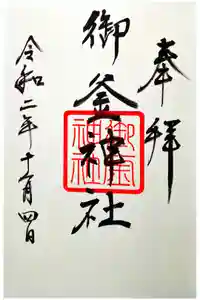 奉拝
御釜神社
御釜神社
令和二年十一月四日